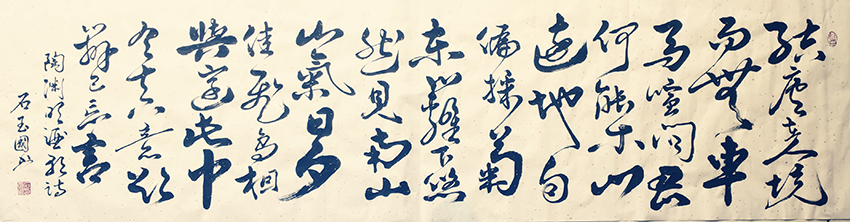 結廬在人境
而無車
馬喧問君
何能尔心
遠地自
偏採菊
東籬下悠
然見南山
山氣日夕
佳飛鳥相
與還此中
有真意欲
辨已忘言
陶淵明 詩
石玉國